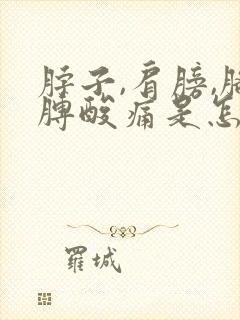 脖子,肩膀,
脾酸痛是怎
羅城